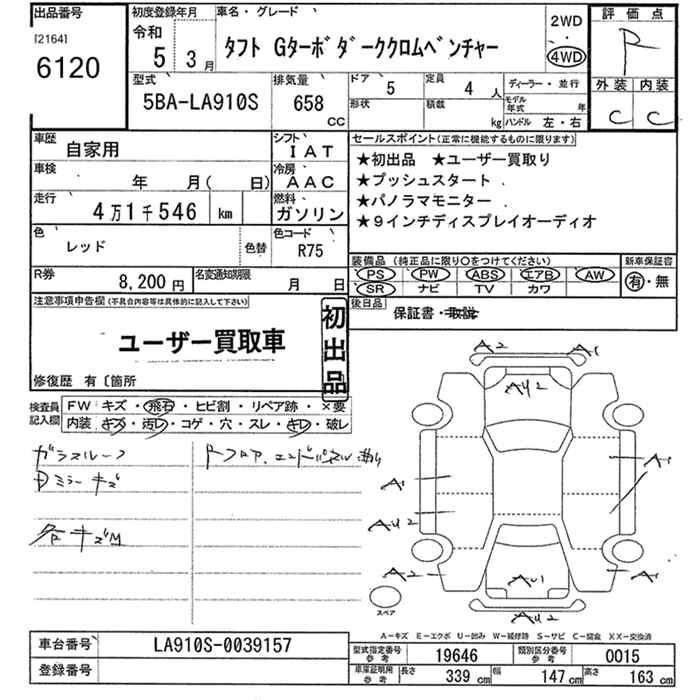 出品番号
[2164]
6120
初度登録年月
令和
5 3月
車名・グレード
タフト Gターボダーククロムベンチャー
2WD
・
4WD
評価点
R
外装 内装
C C
型式
5BA-LA910S
排気量
658
CC
ドア
5
定員
4人
ディーラー・並行
形状
積載
kg
モデル年式 年
ハンドル 左・右
車歴
自家用
シフト
IAT
車検
年 月( 日)
冷房
AAC
走行
4万1千546 km
燃料
ガソリン
色
レッド
色替
色コード
R75
R券
8,200円
名変通知期限
月 日
セールスポイント(正常に機能するものに限ります)
★初出品 ★ユーザー買取り
★プッシュスタート
★パノラマモニター
★9インチディスプレイオーディオ
装備品 (純正品に限り○をつけてください)
PS PW ABS エアB AW
SR ナビ TV カワ
新車保証書
有・無
後日品
保証書・取説
注意事項申告欄(不具合内容等は具体的に記入して下さい)
ユーザー買取車
初出品
修復歴 有〔箇所
検査員記入欄
FW キズ・飛石・ヒビ割・リペア跡・×要
内装 キズ・汚レ・コゲ・穴・スレ・キレ・破レ
ガラスルーフ
Dミラーキズ
各キズM
Rフロア、エンドパネル歪り
A2 A1
AU2
A1 A1
AU2
A2 AU1 A1
AU2
スペア
A-キズ E-エクボ U-凹み W-補修跡 S-サビ C-腐食 XX-交換済
車台番号
LA910S-0039157
登録番号
型式指定番号
参考
19646
類別区分番号
参考
0015
車庫証明用
参考
長さ 339 cm 幅 147 cm 高さ 163 cm